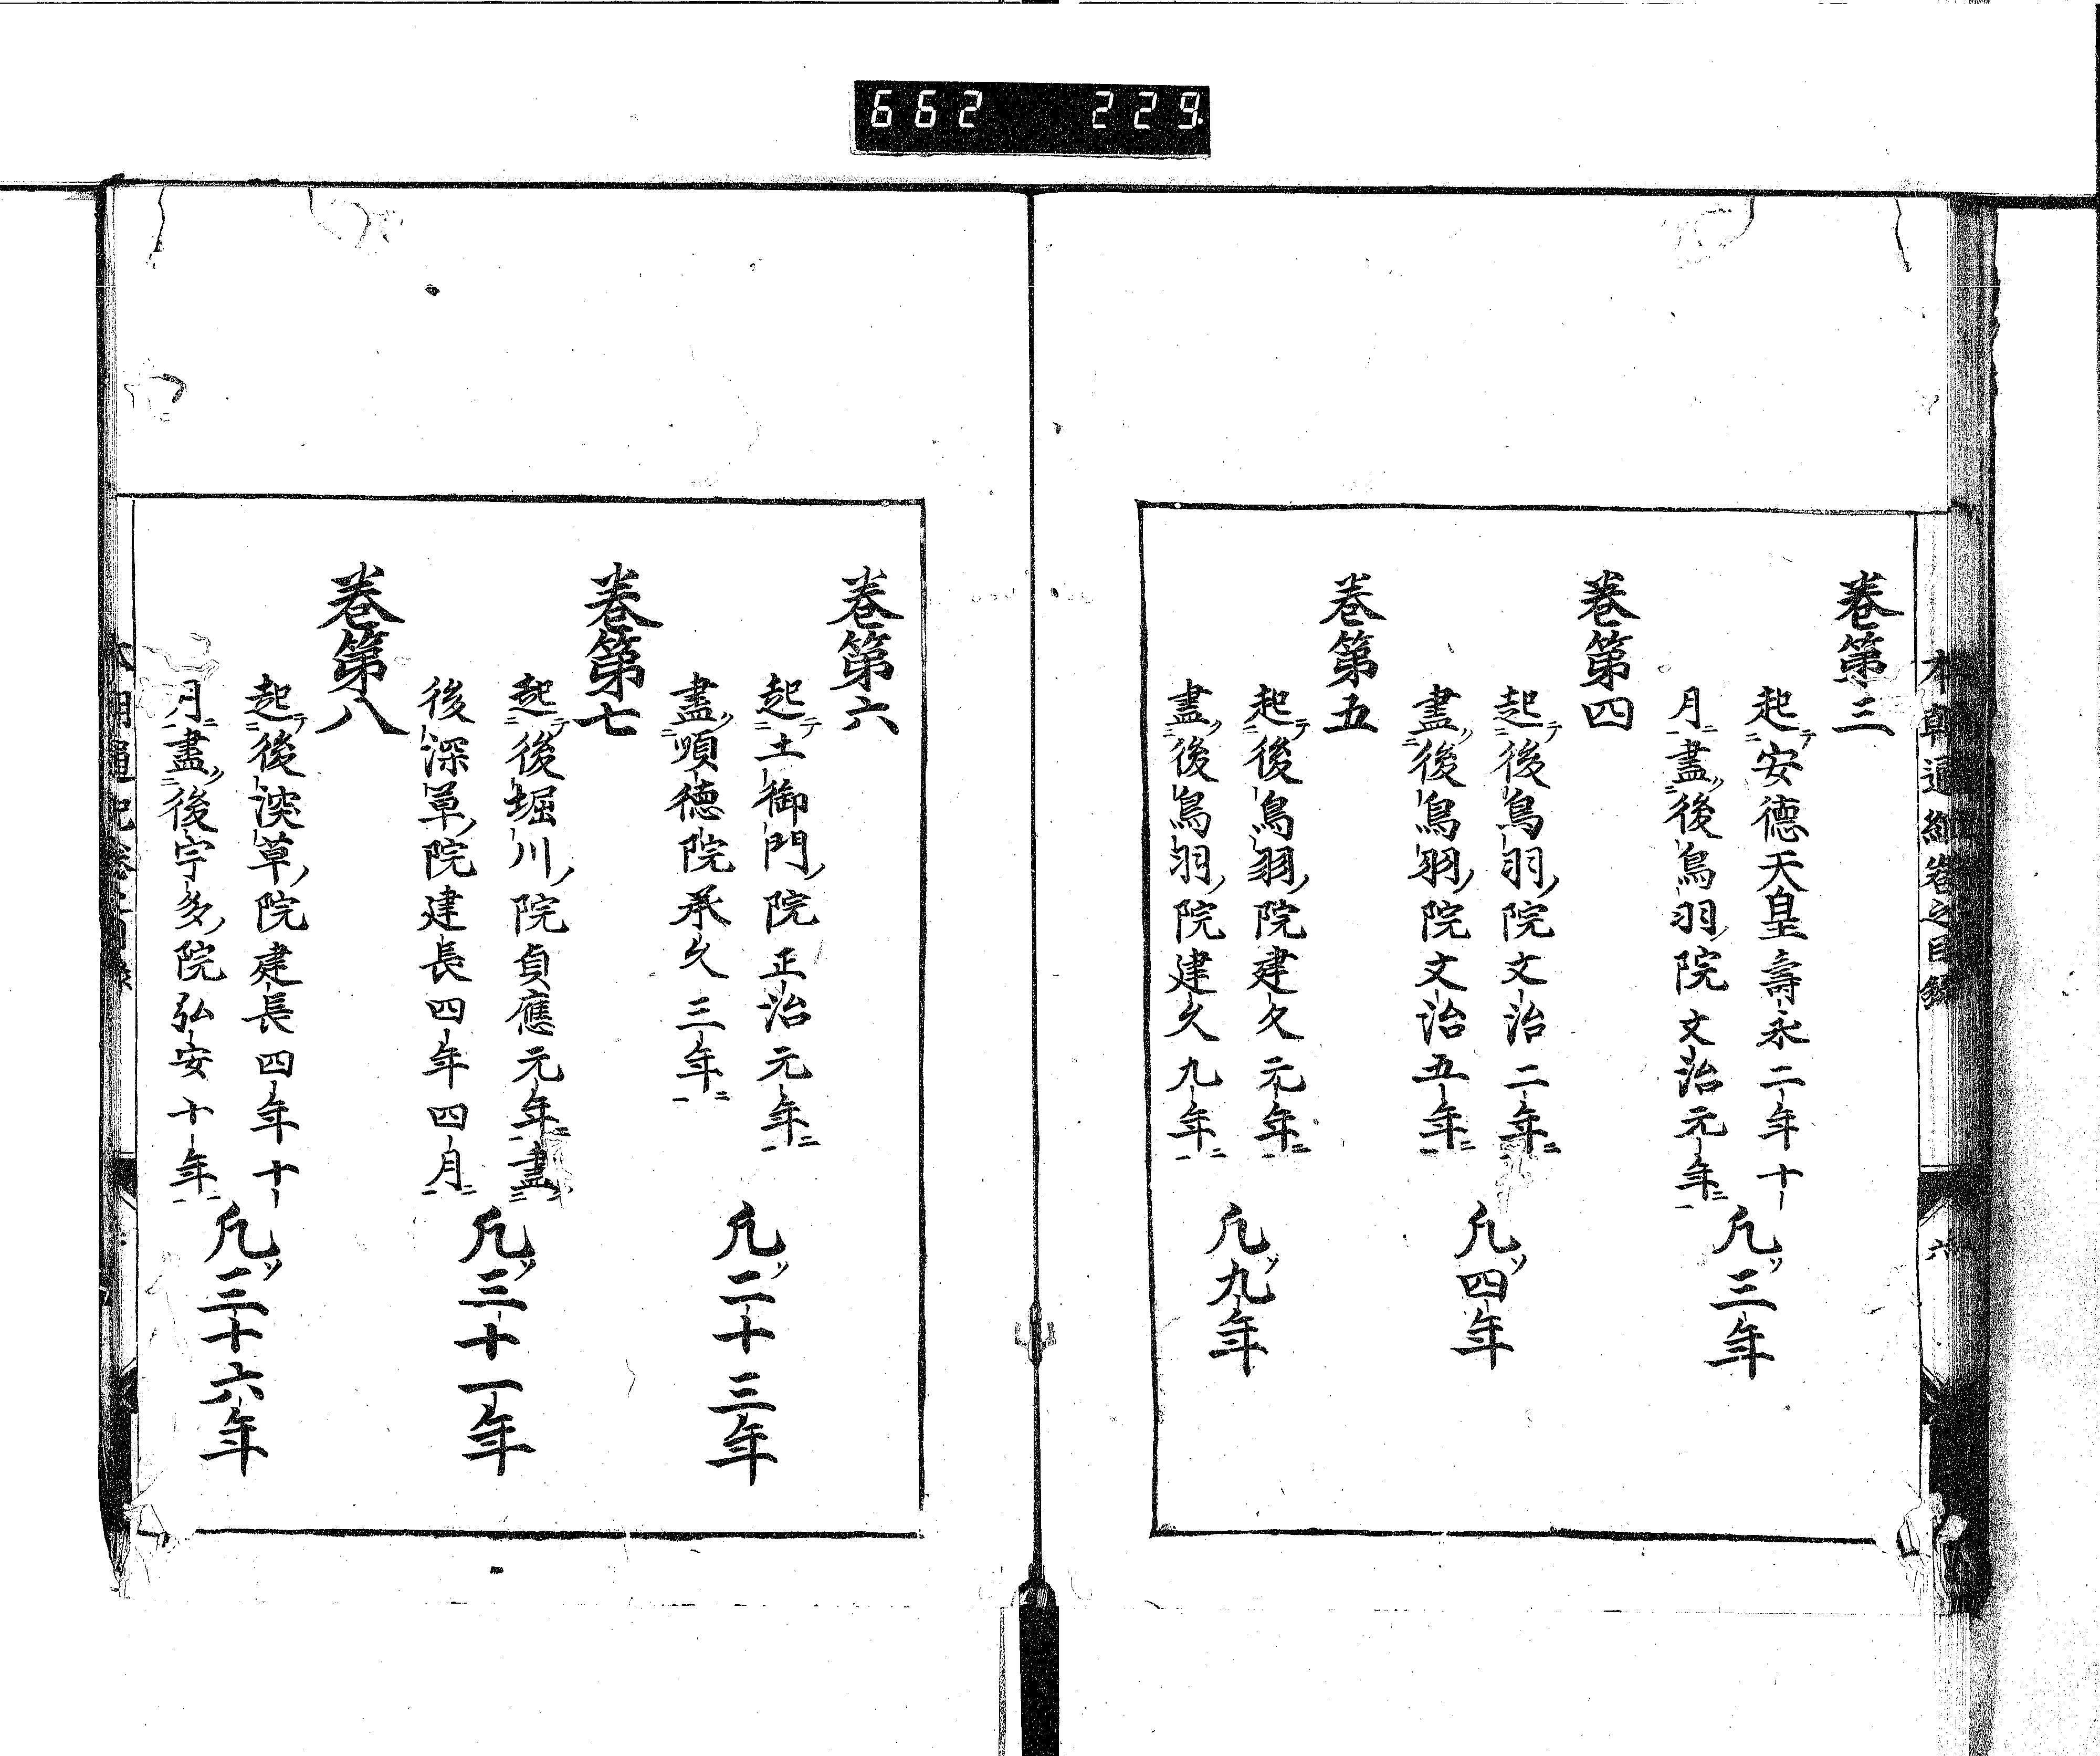 662 229
本朝通紀卷之目録
六
卷第三
起テ安德天皇壽永二年十
月ニ盡ツ後鳥羽ノ院文治元年ニ
凢ソ三年
卷第四
起テ後鳥羽ノ院文治二年ニ
盡ツ後鳥羽ノ院文治五年ニ
凢ソ四年
卷第五
起テ後鳥羽ノ院建久元年ニ
盡ツ後鳥羽ノ院建久九年ニ
凢ソ九年
卷第六
起テ土御門ノ院正治元年ニ
盡ツ順德院承久三年ニ
凢ソ二十三年
卷第七
起テ後堀川ノ院貞應元年ニ盡
後深草ノ院建長四年四月ニ
凢ソ三十一年
卷第八
起テ後深草ノ院建長四年十
月ニ盡ツ後宇多ノ院弘安十年ニ
凢ソ三十六年